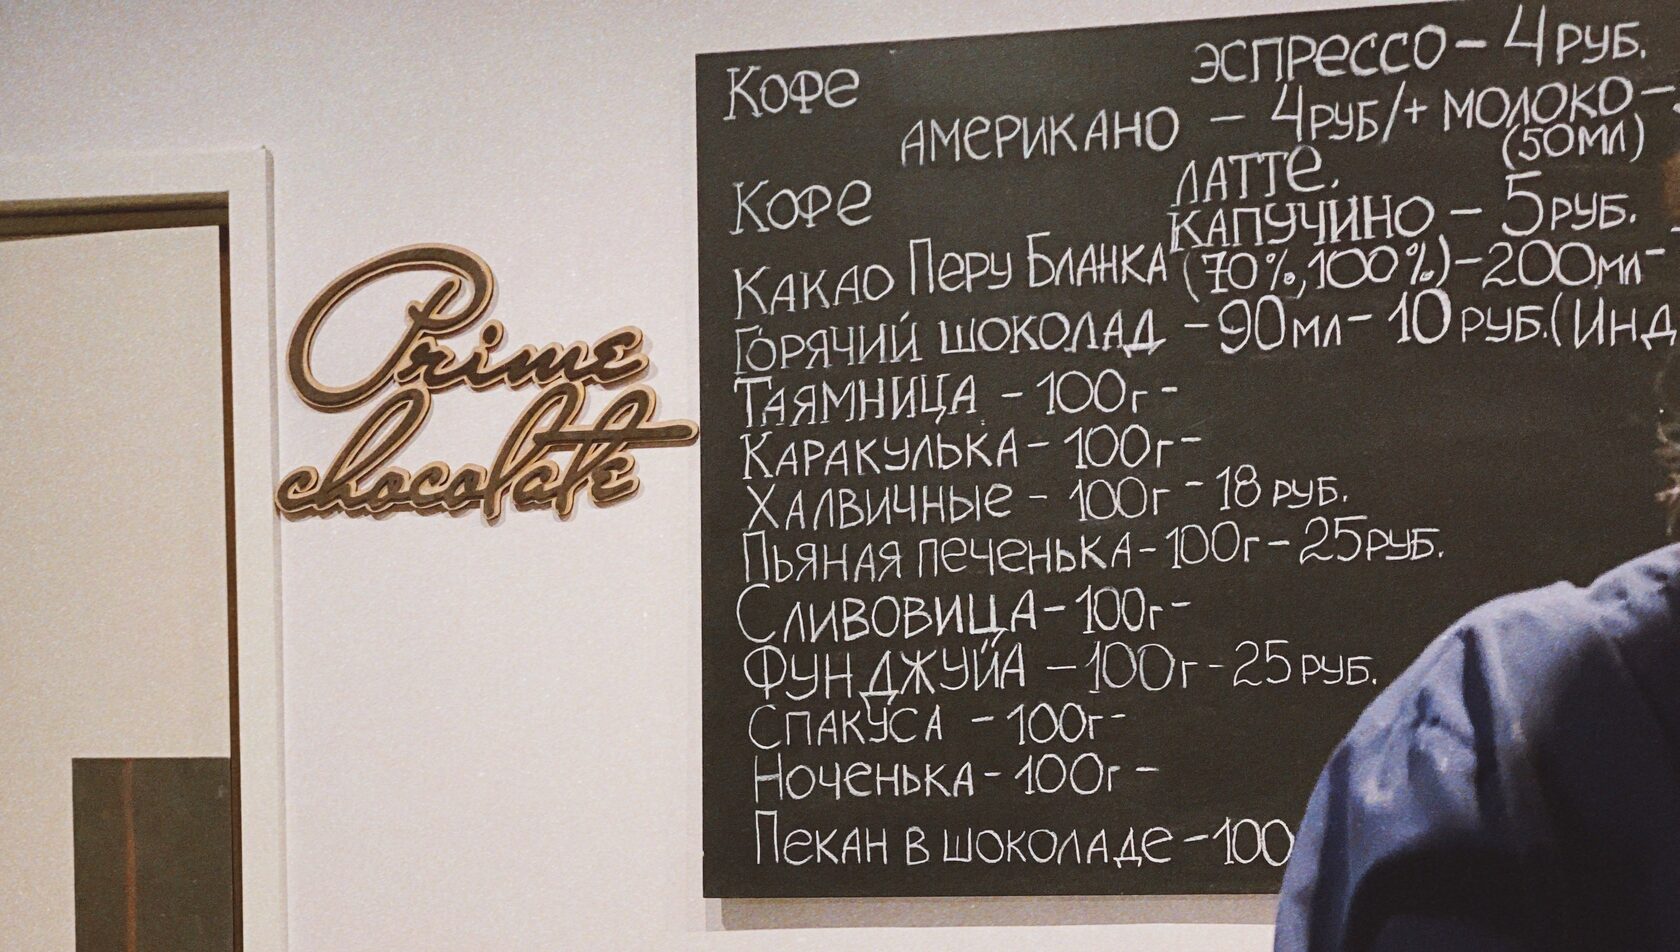 Prime
chocolate
Кофе эспрессо – 4 руб.
американо – 4 руб/+ молоко –
(50мл)
Кофе латте,
капучино – 5 руб.
Какао Перу Бланка (70%, 100%) – 200мл –
Горячий шоколад – 90мл – 10 руб. (Инд
Таямница – 100г –
Каракулька – 100г –
Халвичные – 100г – 18 руб.
Пьяная печенька – 100г – 25 руб.
Сливовица – 100г –
Фунджуйа – 100г – 25 руб.
Спакуса – 100г –
Ноченька – 100г –
Пекан в шоколаде – 100